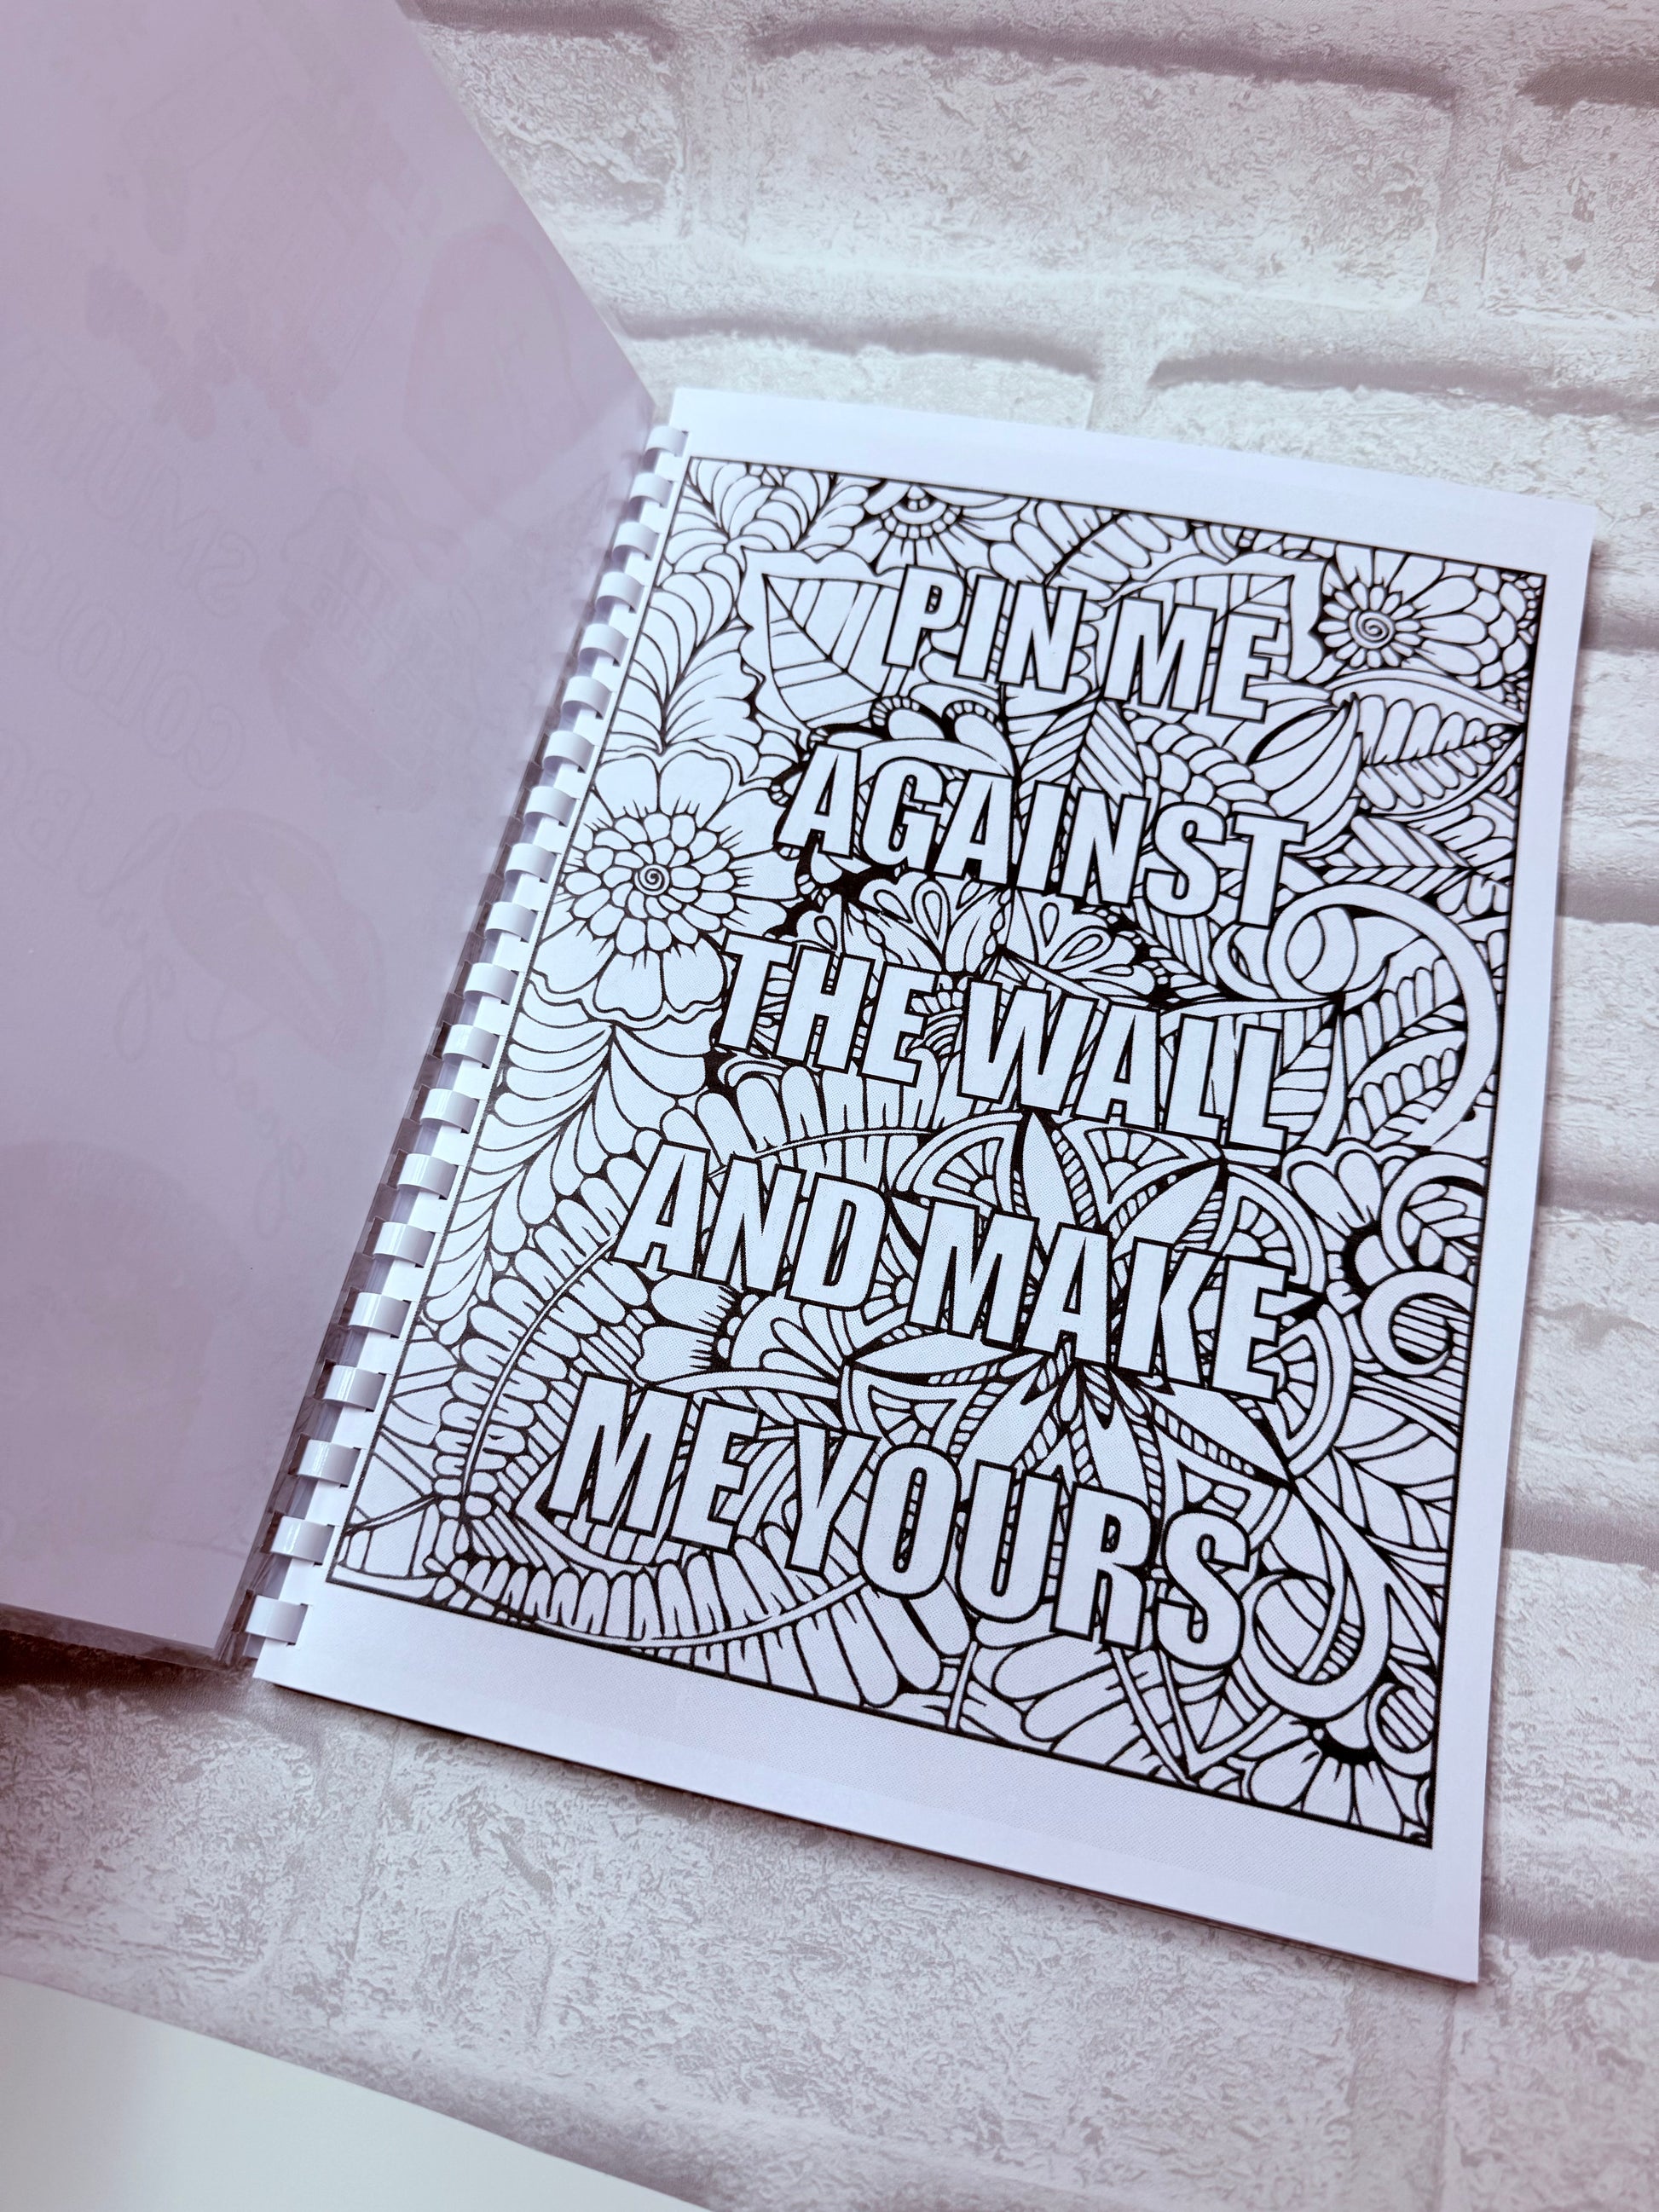 PIN ME
AGAINST
THE WALL
AND MAKE
ME YOURS